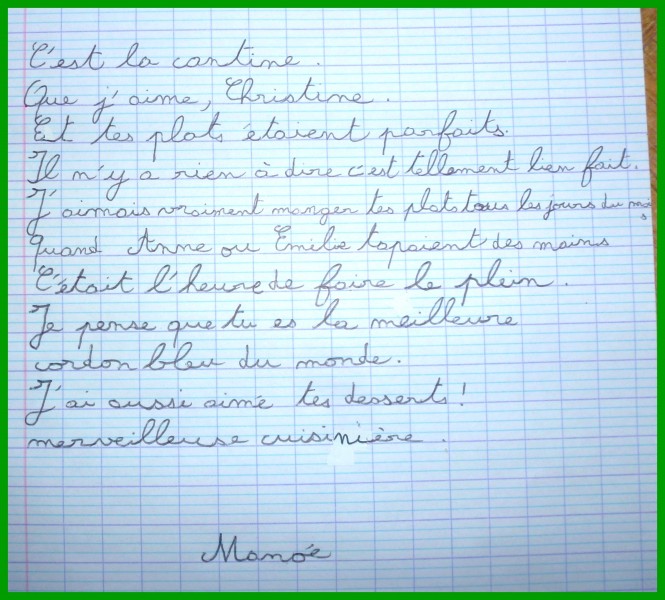 C'est la cantine.
Que j'aime, Christine.
Et tes plats étaient parfaits.
Il n'y a rien à dire c'est tellement bien fait.
J'aimais vraiment manger tes plats tous les jours du mois
quand Anne ou Emilie tapaient des mains
C'était l'heure de faire le plein.
Je pense que tu es la meilleure
cordon bleu du monde.
J'ai aussi aimé tes desserts!
merveilleuse cuisinière.
Manoé